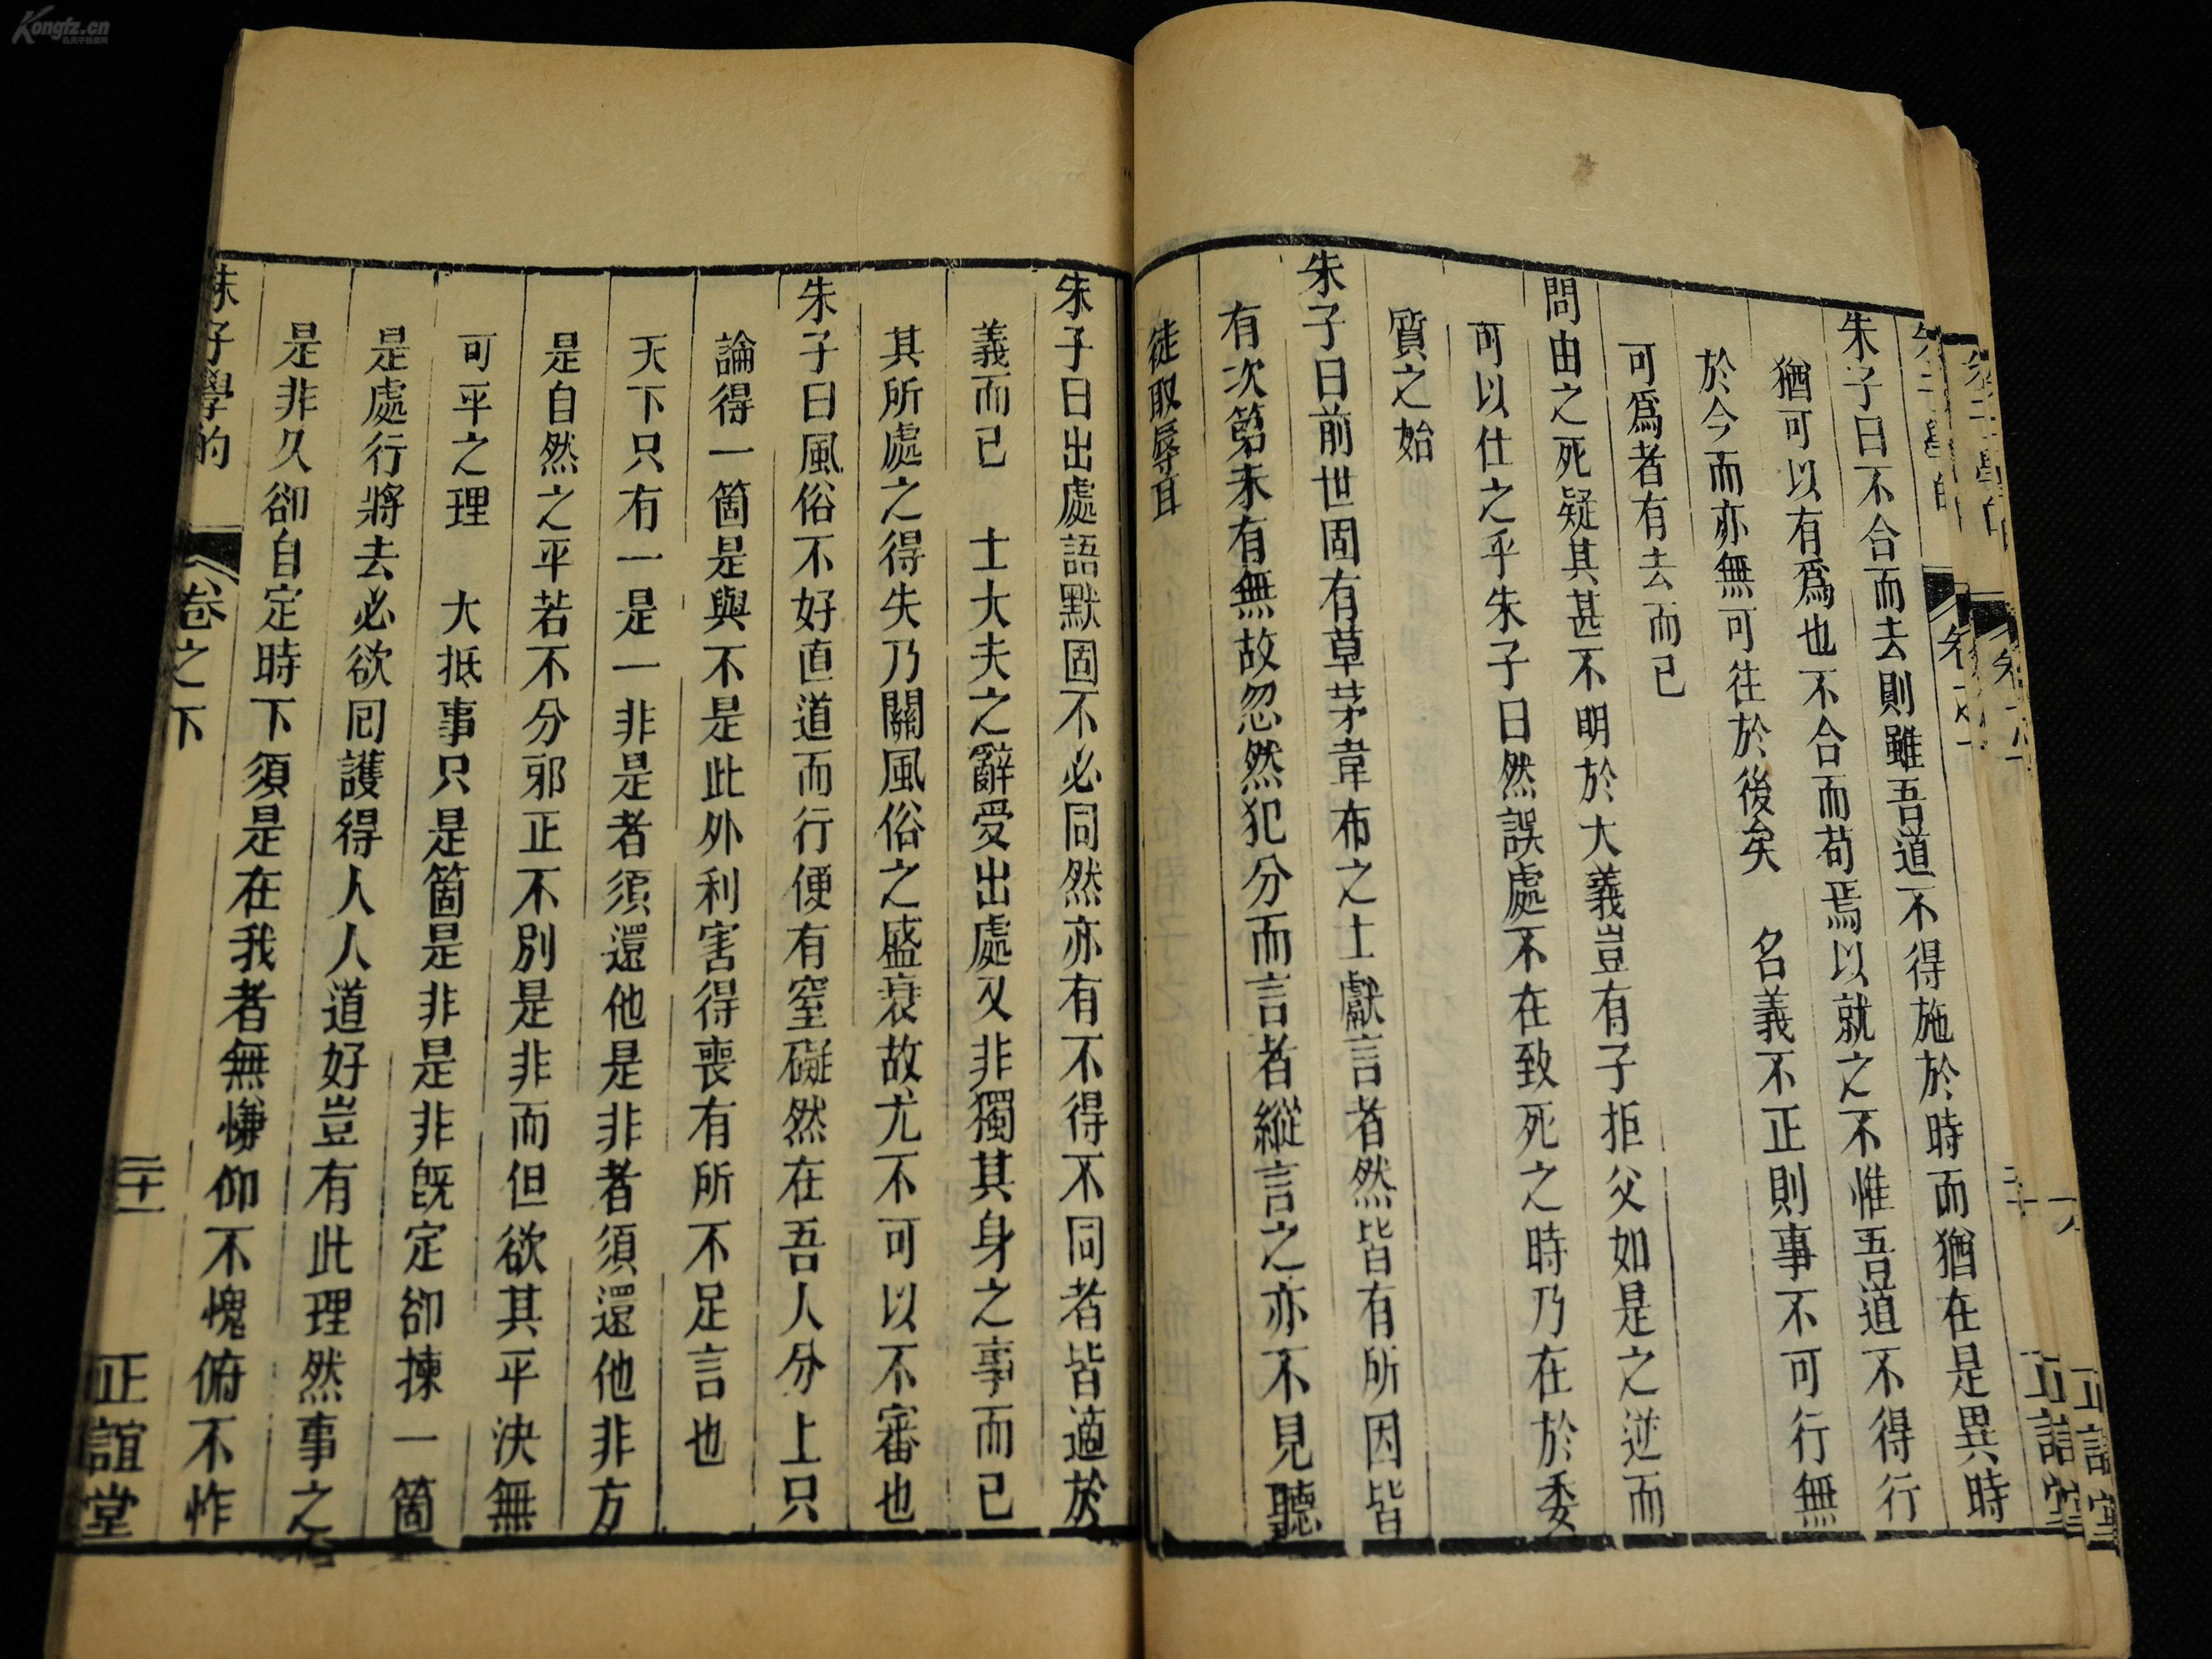 朱子曰不合而去則雖吾道不得施於時而猶在是異時
猶可以有爲也不合而苟焉以就之不惟吾道不得行
於今而亦無可往於後矣　名義不正則事不可行無
可爲者有去而已
問由之死疑其甚不明於大義豈有子拒父如是之逆而
可以仕之乎朱子曰然誤處不在致死之時乃在於委
質之始
朱子曰前世固有草茅韋布之士獻言者然皆有所因皆
有次第未有無故忽然犯分而言者縱言之亦不見聽
徒取辱耳
朱子曰出處語默固不必同然亦有不得不同者皆適於
義而已　士大夫之辭受出處又非獨其身之事而已
其所處之得失乃關風俗之盛衰故尤不可以不審也
朱子曰風俗不好直道而行便有窒礙然在吾人分上只
論得一箇是與不是此外利害得喪有所不足言也
天下只有一是一非是者須還他是非者須還他非方
是自然之平若不分邪正不別是非而但欲其平決無
可平之理　大抵事只是箇是非是非既定卻揀一箇
是處行將去必欲囘護得人人道好豈有此理然事之
是非久卻自定時下須是在我者無慊仰不愧俯不怍
朱子學的 卷之下 二十一 正誼堂
Kongfz.cn